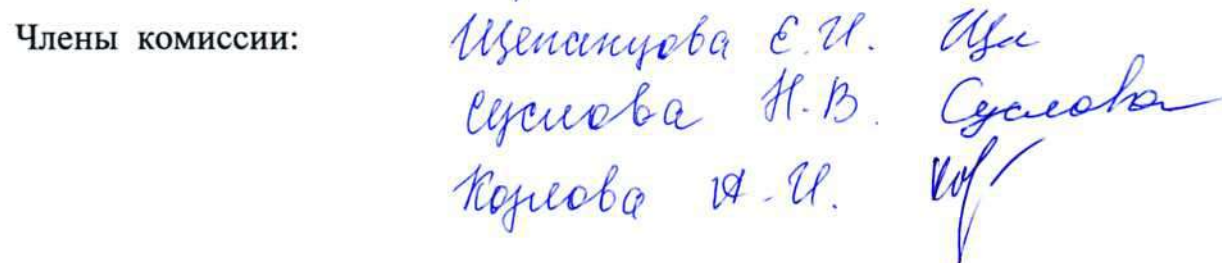 Члены комиссии: Щепанцова Е.И.
Суслова Н.В. Суслова
Козлова А.И.